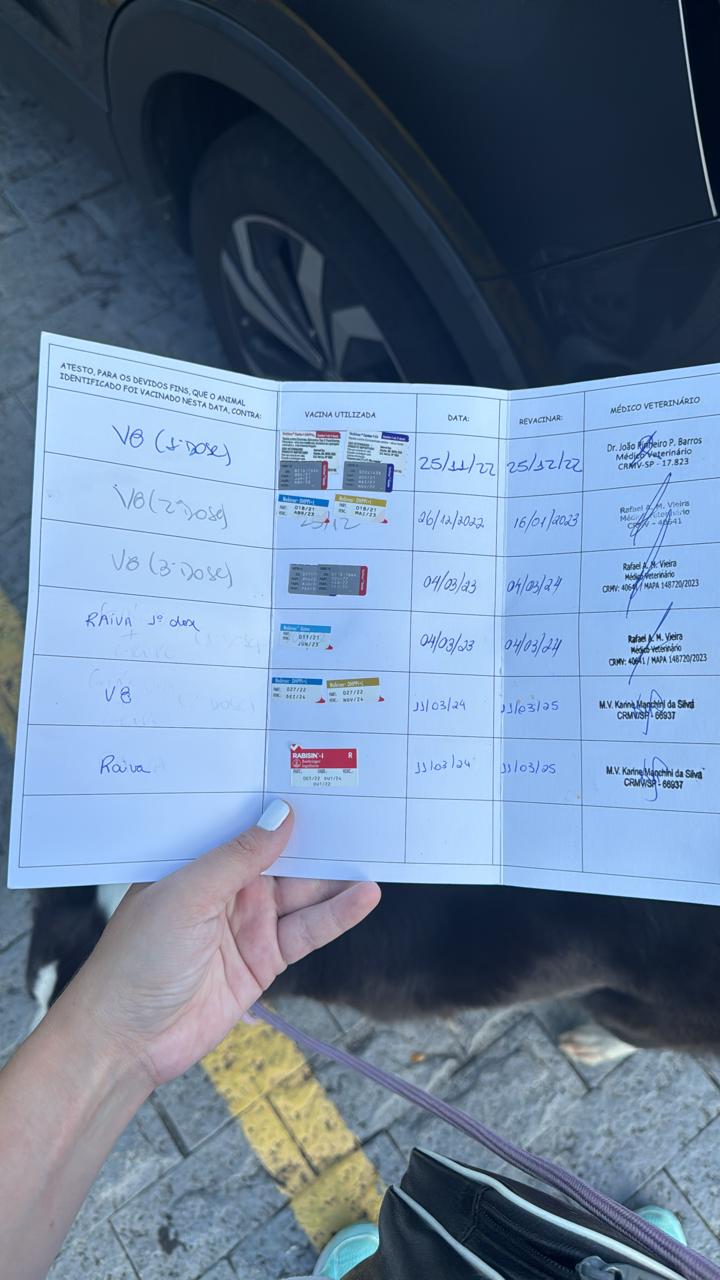 ATESTO, PARA OS DEVIDOS FINS, QUE O ANIMAL
IDENTIFICADO FOI VACINADO NESTA DATA, CONTRA:
VACINA UTILIZADA
DATA:
REVACINAR:
MÉDICO VETERINÁRIO
V8 (1ª DOSE)
25/11/22
25/12/22
Dr. João Pinheiro P. Barros
Médico Veterinário
CRMV-SP - 17.823
V8 (2ª DOSE)
018/21
018/21
26/12/2022
16/01/2023
Rafael A. M. Vieira
Médico Veterinário
V8 (3ª DOSE)
04/03/23
04/03/24
Rafael A. M. Vieira
Médico Veterinário
CRMV: 40641 / MAPA 148720/2023
RAIVA 1ª dose
JUN/23
04/03/23
04/03/24
Rafael A. M. Vieira
Médico Veterinário
CRMV: 40641 / MAPA 148720/2023
V8
Nobivac DHPPi+L
027/22
DEZ/24
Nobivac DHPPi+L
027/22
NOV/24
11/03/24
11/03/25
M.V. Karine Manchini da Silva
CRMV/SP - 66937
Raiva
RABISIN-I
R
Boehringer
Ingelheim
11/03/24
11/03/25
M.V. Karine Manchini da Silva
CRMV/SP - 66937